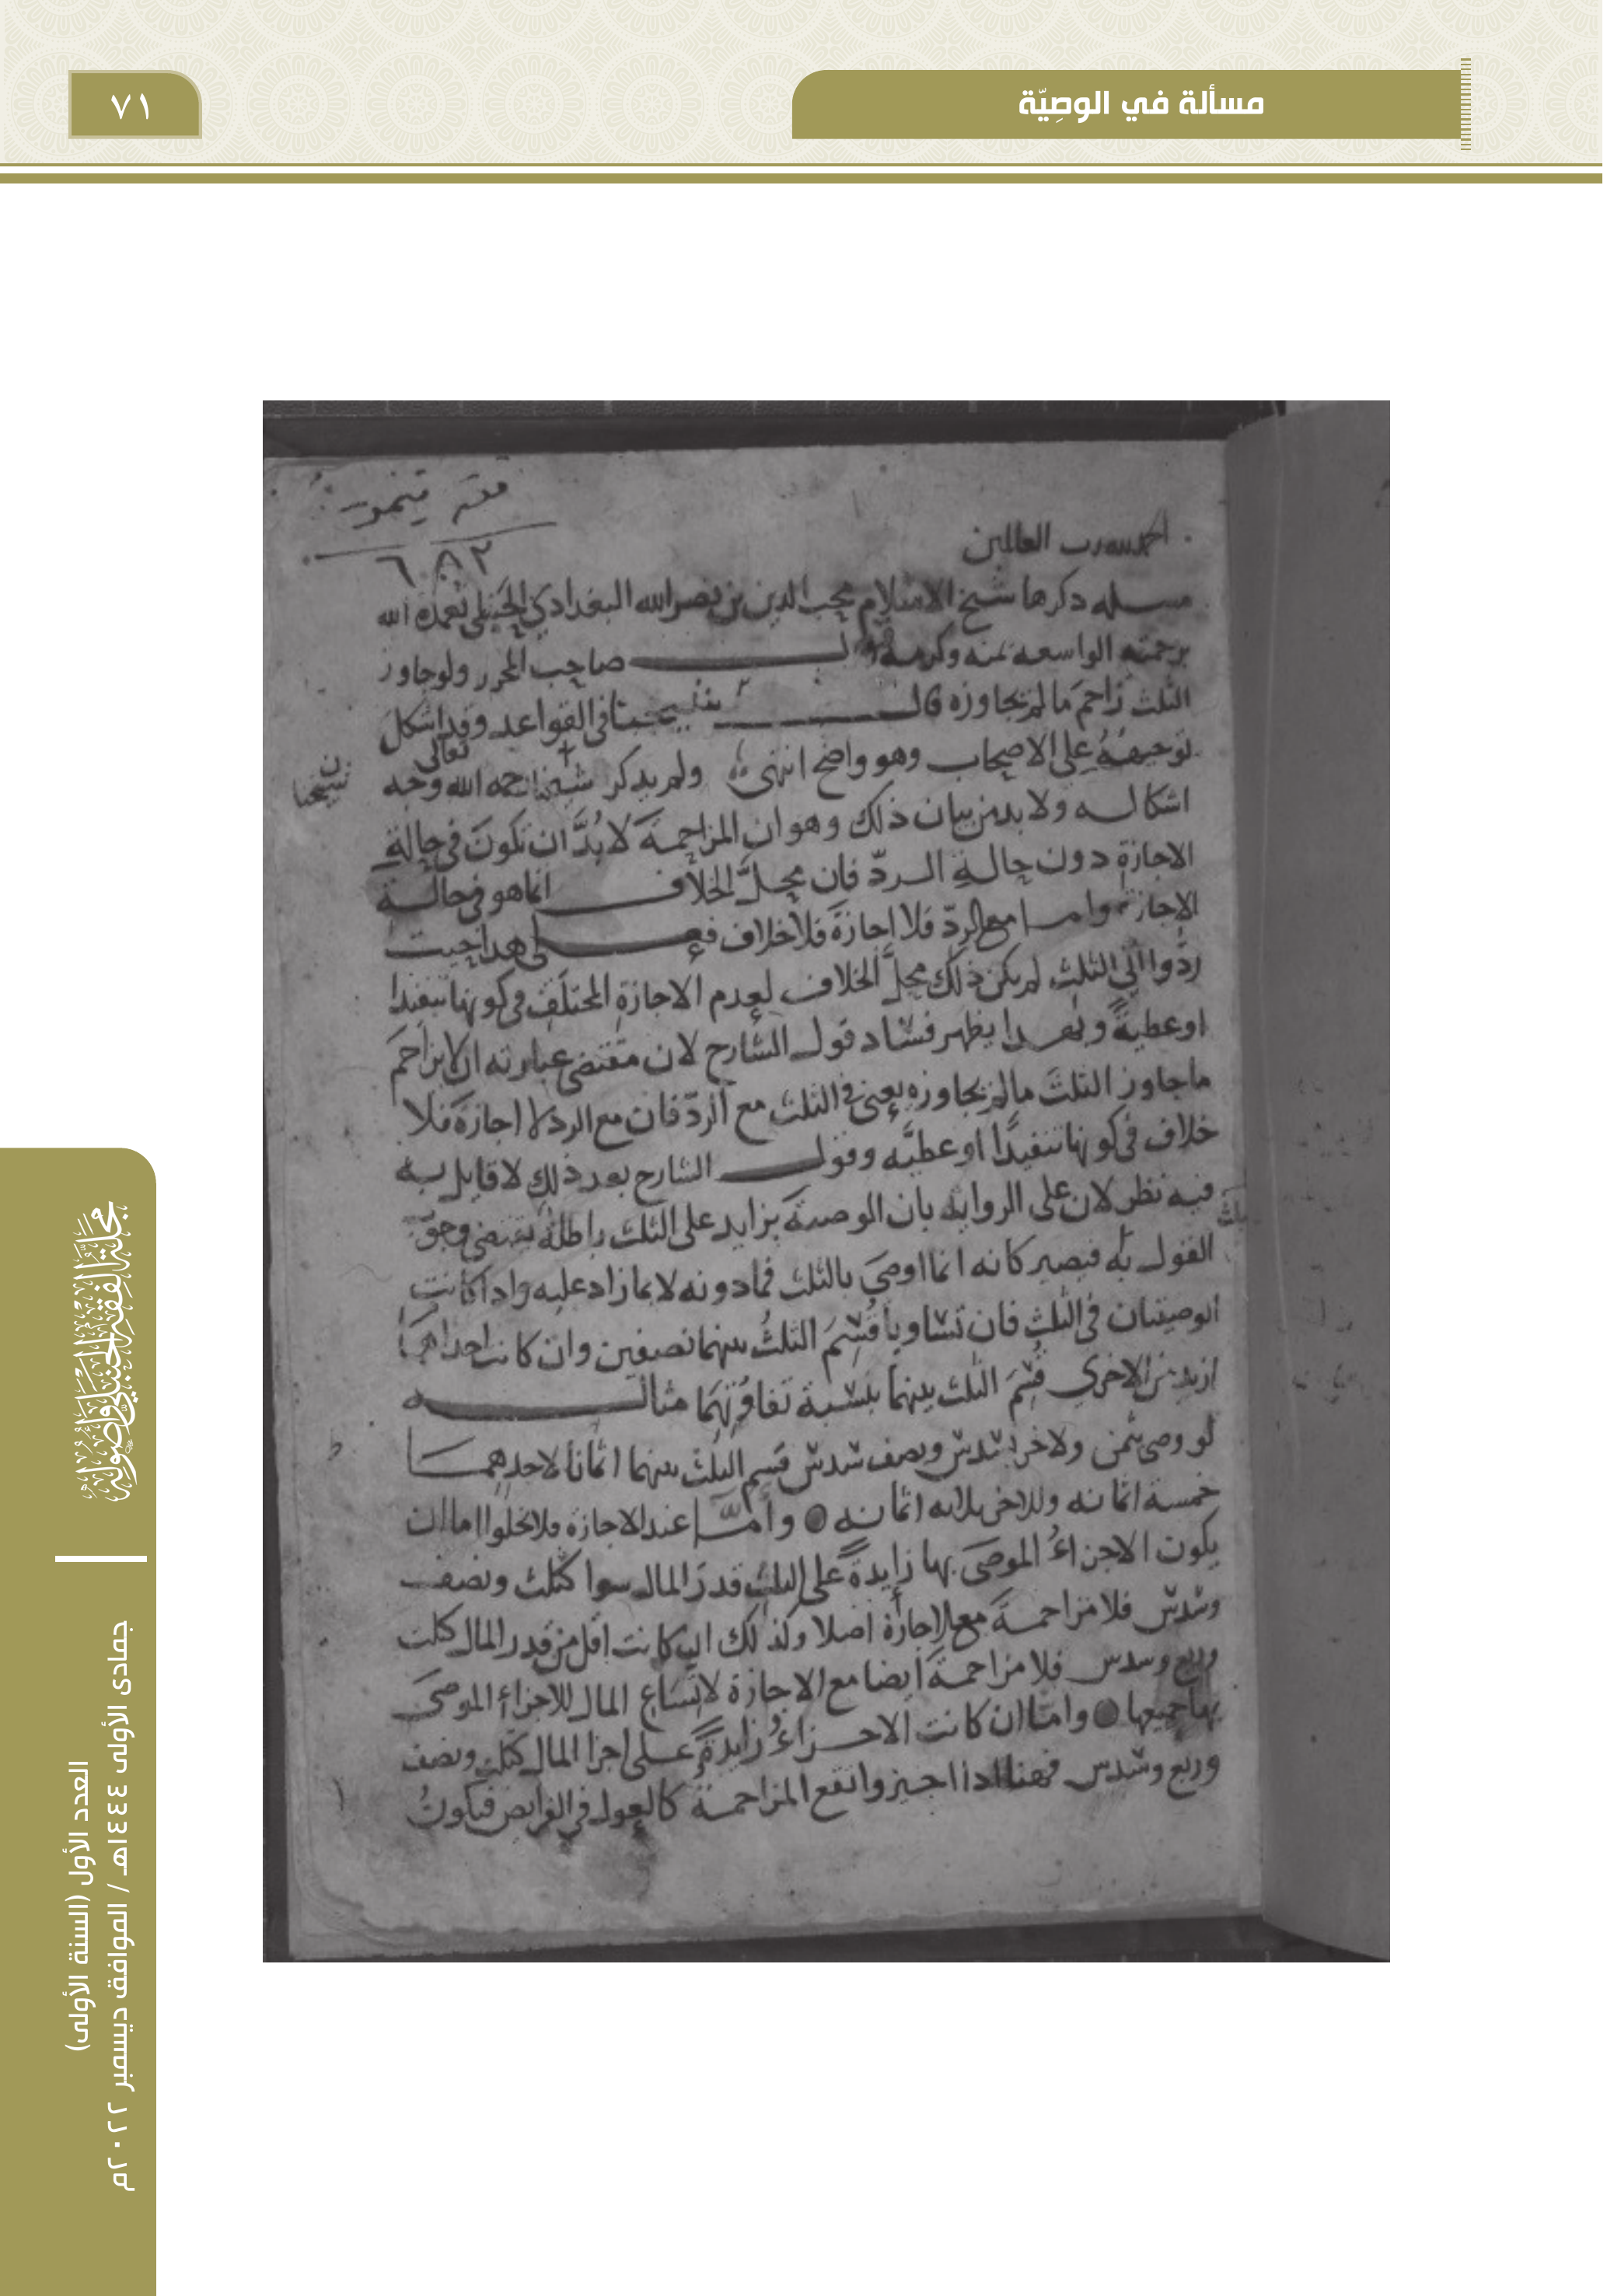 مسألة في الوصِيّة
٧١
فقه تيمور
٦٨٢
الحمد لله رب العالمين
مسله ذكرها شيخ الاسلام محب الدين بن نصر الله البغدادي الحنبلي تغمده الله
برحمته الواسعه بمنه وكرمه قال صاحب المحرر ولو جاوز
الثلث زاحم ما لم يجاوزه قال شيخنا في القواعد وقد اشكل
توجيهه على الاصحاب وهو واضح انتهى ولم يذكر شيخنا رحمه الله تعالى وجه
شيخنا
اشكاله ولا بد من بيان ذلك وهو ان المزاحمة لا بُدَّ ان تكون في حالة
الاجازة دون حالة الردّ فان محلَّ الخلاف انما هو في حالة
الاجازة واما مع الردّ فلا اجازة فلا خلاف فعلى هذا حيث
ردُّوا الى الثلث لم يكن ذلك محلَّ الخلاف لعدم الاجازة المختلف في كونها تنفيذا
او عطيةً وبهذا يظهر فساد قول الشارح لان مقتضى عبارته ان لا يزاحم
ما جاوز الثلث ما لم يجاوزه يعني في الثلث مع الردّ فان مع الرد لا اجازة فلا
خلاف في كونها تنفيذًا او عطيَّه وقول الشارح بعد ذلك لا قايل به
فيه نظر لان على الروايه بان الوصية بزايد على الثلث باطلة يقتضي
القول به فيصير كانه انما اوصى بالثلث فما دونه لا بما زاد عليه واذا كانت
الوصيتان في الثلث فان تساويا قُسِمَ الثلثُ بينهما نصفين وان كانت احداهما
ازيد من الاخري قُسِمَ الثلث بينهما بنسبة تفاوتهما مثاله
لو وصى بثمن ولاخر بسدس ونصف سدس قسم الثلث بينهما اثمانا لاحدهما
خمسة اثمانه وللاخر ثلاثه اثمانه وأمّا عند الاجازه فلا يخلوا اما ان
يكون الاجزاءُ الموصى بها زايدةً على الثلث قدرَ المال سوا كثلث ونصف
وسدس فلا مزاحمة مع الاجازة اصلا وكذلك ان كانت اقل من قدر المال كثلث
وربع وسدس فلا مزاحمة أيضا مع الاجازة لاتساع المال للاجزاء الموصى
بها جميعها وامّا ان كانت الاجزاءُ زايدةً على اجزا المال كثلث ونصف
وربع وسدس فهنا اذا اجيزوا تقع المزاحمة كالعول في الفرايض فيكونُ
مجلة الفقه الحنبلي وأصوله
العدد الأول (السنة الأولى)
جمادى الأولى ١٤٤٤هـ / الموافق ديسمبر ٢٠٢٢م